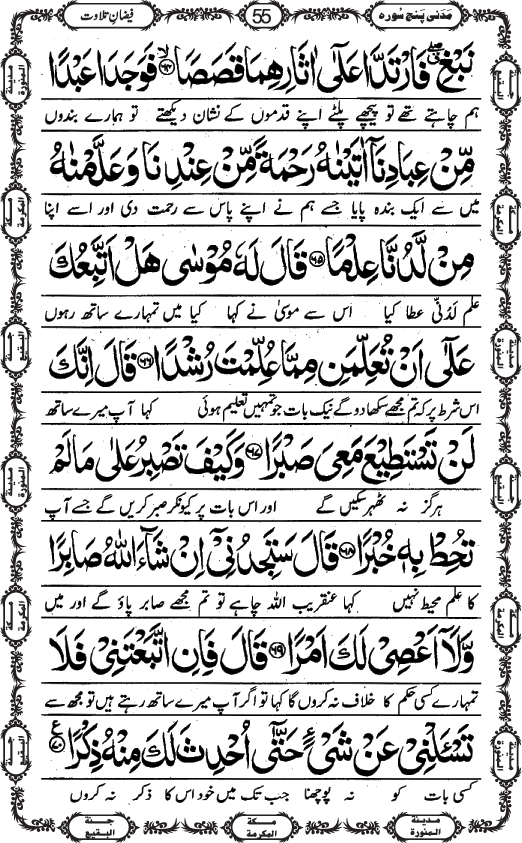 مَدَنی پنج سُورہ
55
فیضانِ تلاوت
نَبْغِ ۖۗ فَارْتَدَّا عَلٰۤى اٰثَارِهِمَا قَصَصًاۙ﴿۶۴﴾ فَوَجَدَا عَبْدًا
ہم چاہتے تھے تو پیچھے پلٹے اپنے قدموں کے نشان دیکھتے تو ہمارے بندوں
مِّنْ عِبَادِنَاۤ اٰتَيْنٰهُ رَحْمَةً مِّنْ عِنْدِنَا وَعَلَّمْنٰهُ
میں سے ایک بندہ پایا جسے ہم نے اپنے پاس سے رحمت دی اور اسے اپنا
مِنْ لَّدُنَّا عِلْمًا﴿۶۵﴾ قَالَ لَهٗ مُوْسٰى هَلْ اَتَّبِعُكَ
علم لدُنّی عطا کیا اس سے موسیٰ نے کہا کیا میں تمہارے ساتھ رہوں
عَلٰۤى اَنْ تُعَلِّمَنِ مِمَّا عُلِّمْتَ رُشْدًا﴿۶۶﴾ قَالَ اِنَّكَ
اس شرط پر کہ تم مجھے سکھا دو گے نیک بات جو تمہیں تعلیم ہوئی کہا آپ میرے ساتھ
لَنْ تَسْتَطِيْعَ مَعِيَ صَبْرًا﴿۶۷﴾ وَكَيْفَ تَصْبِرُ عَلٰى مَا لَمْ
ہرگز نہ ٹھہر سکیں گے اور اس بات پر کیونکر صبر کریں گے جسے آپ
تُحِطْ بِهٖ خُبْرًا﴿۶۸﴾ قَالَ سَتَجِدُنِیْۤ اِنْ شَآءَ اللّٰهُ صَابِرًا
کا علم محیط نہیں کہا عنقریب اللہ چاہے تو تم مجھے صابر پاؤ گے اور میں
وَّلَاۤ اَعْصِیْ لَكَ اَمْرًا﴿۶۹﴾ قَالَ فَاِنِ اتَّبَعْتَنِیْ فَلَا
تمہارے کسی حکم کا خلاف نہ کروں گا کہا تو اگر آپ میرے ساتھ رہتے ہیں تو مجھ سے
تَسْـَٔلْنِیْ عَنْ شَیْءٍ حَتّٰۤى اُحْدِثَ لَكَ مِنْهُ ذِكْرًا﴿۷۰﴾ ع
کسی بات کو نہ پوچھنا جب تک میں خود اس کا ذکر نہ کروں
مدينة المنورة
مكة المكرمة
جنة البقيع